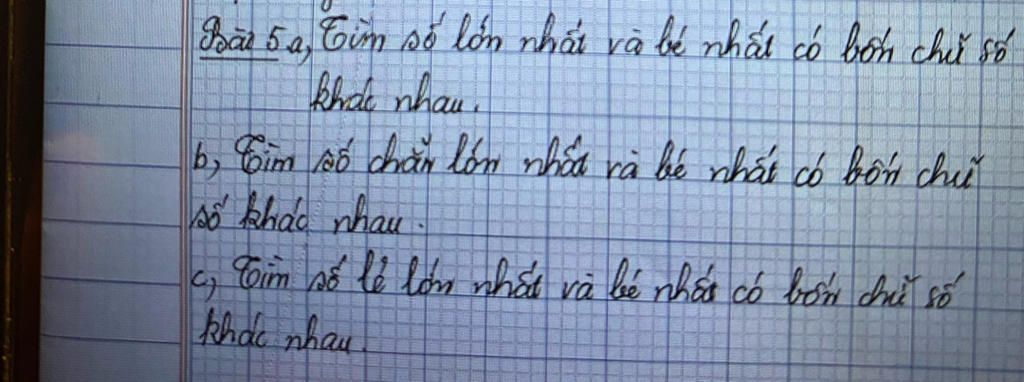 Bài 5 a, Tìm số lớn nhất và bé nhất có bốn chữ số
khác nhau.
b, Tìm số chẵn lớn nhất và bé nhất có bốn chữ
số khác nhau.
c, Tìm số lẻ lớn nhất và bé nhất có bốn chữ số
khác nhau.